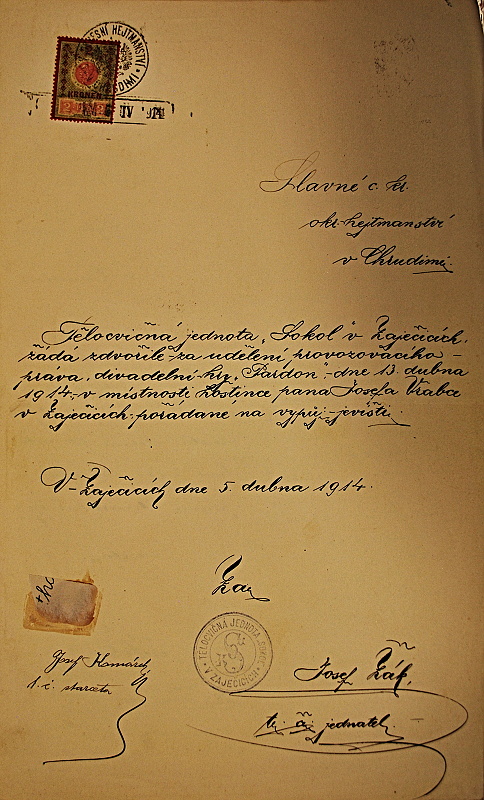 KRONEN
IV 1914
Slavné c. kr.
okr. hejtmanství
v Chrudimi.
Tělocvičná jednota „Sokol“ v Zaječicích,
žádá zdvořile za udělení provozovacího
práva, divadelní hry „Pardon“, dne 13. dubna
1914, v místnosti hostince pana Josefa Vrabce
v Zaječicích, pořádané na vypůj. jevišti.
V Zaječicích dne 5. dubna 1914.
Za
TĚLOCVIČNÁ JEDNOTA SOKOL
V ZAJEČICÍCH
Josef
t. č. starosta
Josef Žák,
t. č. jednatel.